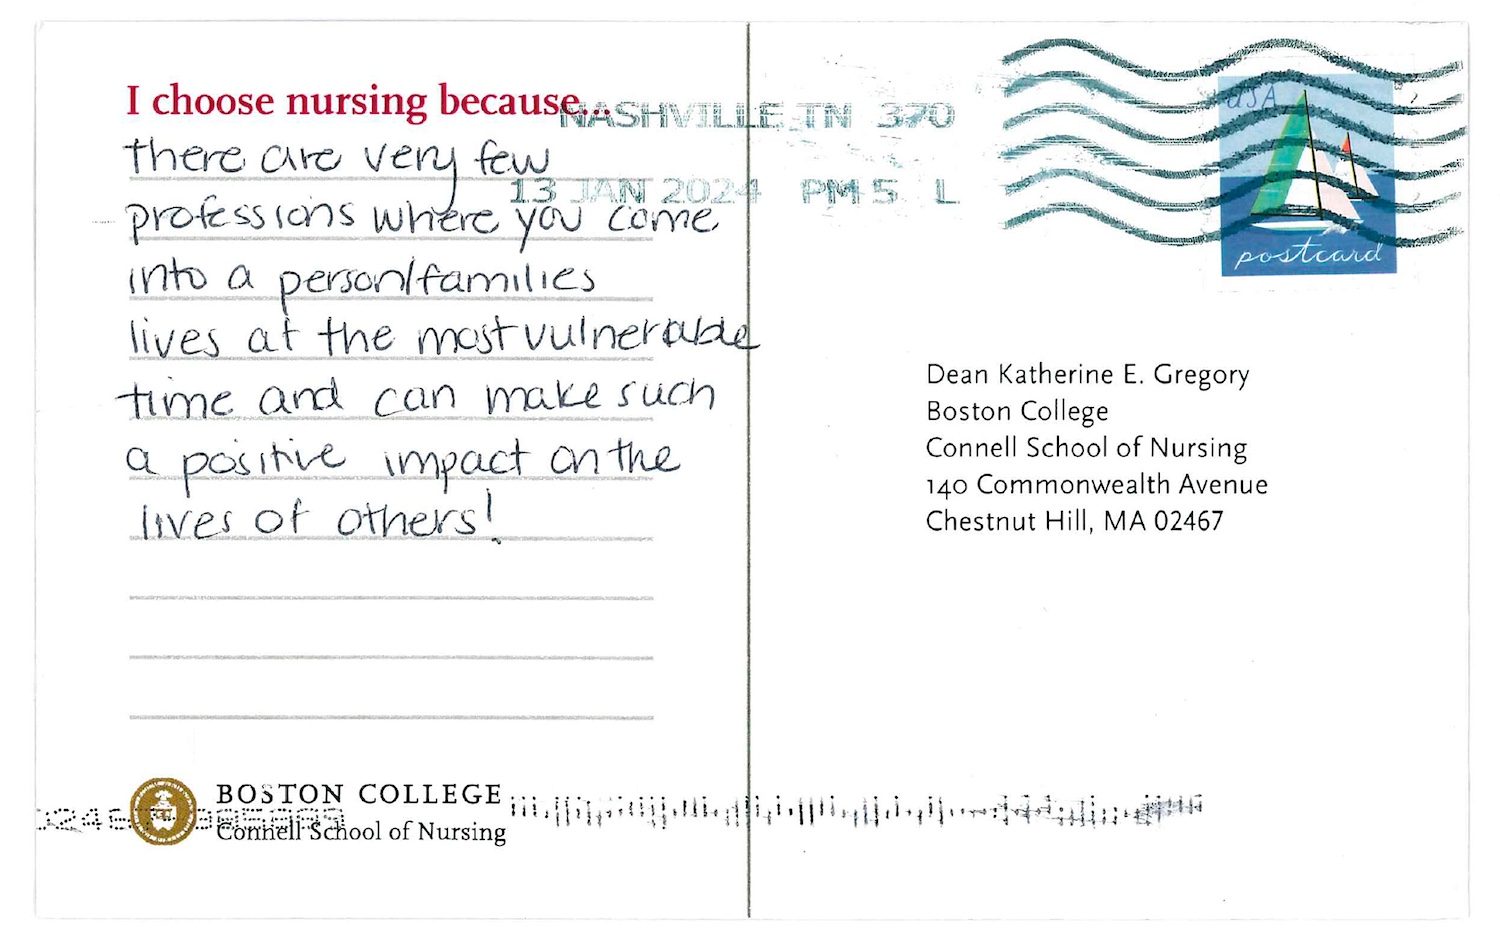 I choose nursing because...
there are very few
professions where you come
into a person/families
lives at the most vulnerable
time and can make such
a positive impact on the
lives of others!
BOSTON COLLEGE
Connell School of Nursing
NASHVILLE TN 370
13 JAN 2024 PM 5 L
USA
postcard
Dean Katherine E. Gregory
Boston College
Connell School of Nursing
140 Commonwealth Avenue
Chestnut Hill, MA 02467